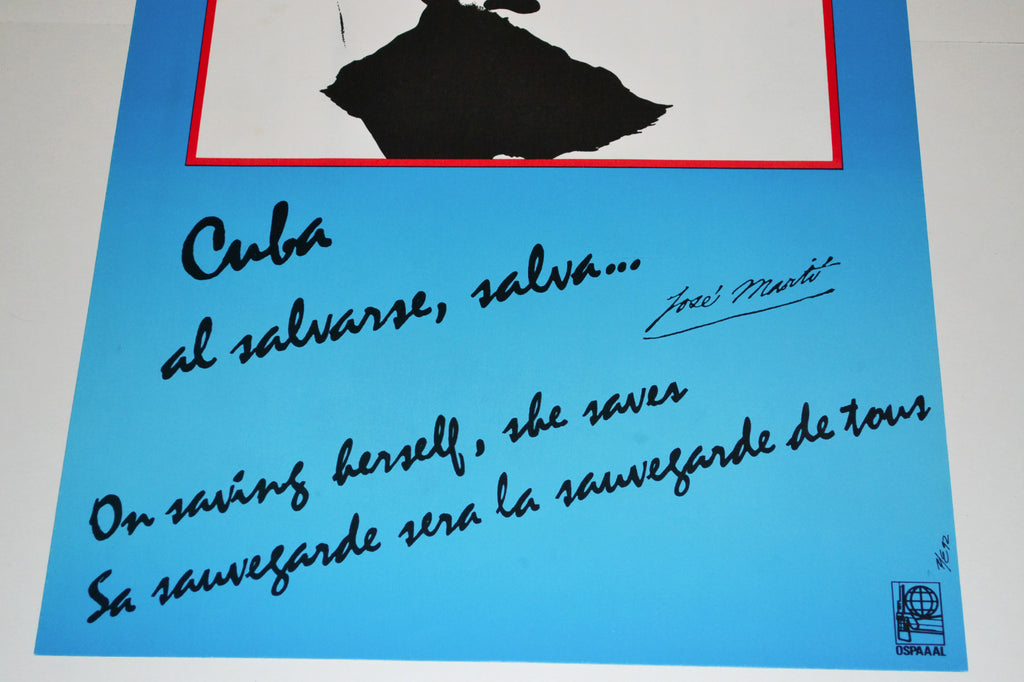 Cuba
al salvarse, salva...
José Martí
On saving herself, she saves
Sa sauvegarde sera la sauvegarde de tous
OSPAAAL